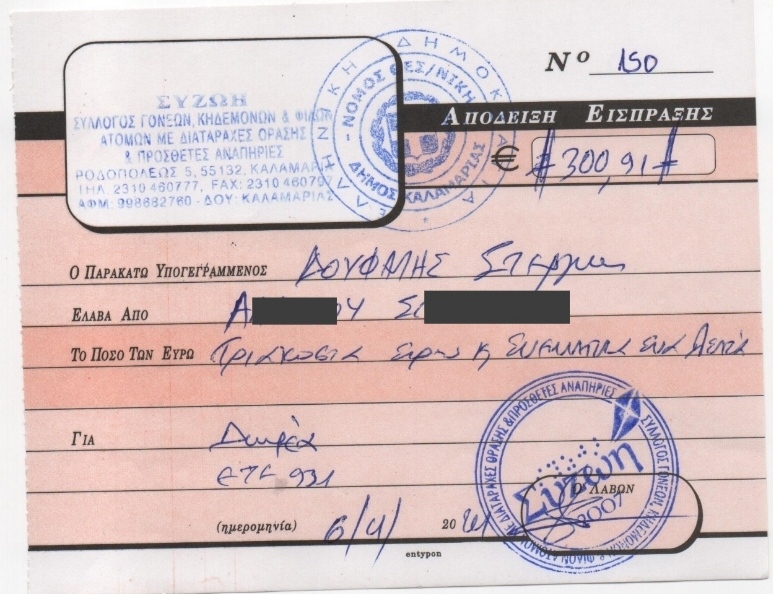 Νº 150
ΣΥΖΩΗ
ΣΥΛΛΟΓΟΣ ΓΟΝΕΩΝ, ΚΗΔΕΜΟΝΩΝ & ΦΙΛΩΝ
ΑΤΟΜΩΝ ΜΕ ΔΙΑΤΑΡΑΧΕΣ ΟΡΑΣΗΣ
& ΠΡΟΣΘΕΤΕΣ ΑΝΑΠΗΡΙΕΣ
ΡΟΔΟΠΟΛΕΩΣ 5, 55132, ΚΑΛΑΜΑΡΙΑ
ΤΗΛ. 2310 460777, FAX: 2310 460797
ΑΦΜ: 998682760 - ΔΟΥ: ΚΑΛΑΜΑΡΙΑΣ
ΕΛΛΗΝΙΚΗ ΔΗΜΟΚΡΑΤΙΑ
ΝΟΜΟΣ ΘΕΣ/ΝΙΚΗΣ
ΔΗΜΟΣ ΚΑΛΑΜΑΡΙΑΣ
ΑΠΟΔΕΙΞΗ ΕΙΣΠΡΑΞΗΣ
€ # 300,91 #
Ο ΠΑΡΑΚΑΤΩ ΥΠΟΓΕΓΡΑΜΜΕΝΟΣ ΔΟΥΦΛΗΣ
ΕΛΑΒΑ ΑΠΟ
ΤΟ ΠΟΣΟ ΤΩΝ ΕΥΡΩ Τριακόσια ευρώ κ ενενήντα ένα λεπτά
ΓΙΑ Δωρεά
ΕΤΕ 931
(ημερομηνία) 6/4/ 20
ΣΥΛΛΟΓΟΣ ΓΟΝΕΩΝ, ΚΗΔΕΜΟΝΩΝ & ΦΙΛΩΝ ΑΤΟΜΩΝ ΜΕ ΔΙΑΤΑΡΑΧΕΣ ΟΡΑΣΗΣ & ΠΡΟΣΘΕΤΕΣ ΑΝΑΠΗΡΙΕΣ
Συζωη
2007
Ο ΛΑΒΩΝ
entypon